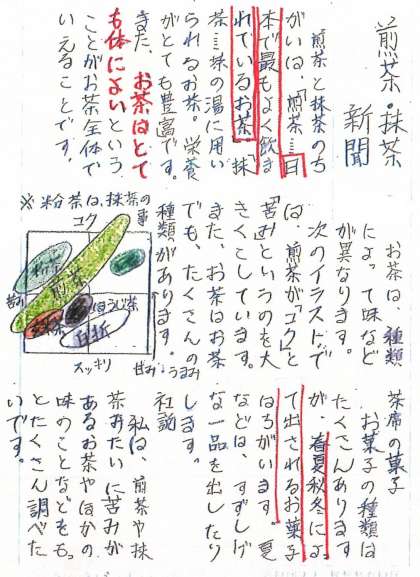 煎茶・抹茶
新聞
煎茶と抹茶のち
がいは、「煎茶……日
本で最もよく飲ま
れているお茶」「抹
茶……抹の湯に用い
られるお茶。栄養
がとても豊富です。
また、お茶はとて
も体によいという
ことがお茶全体で
いえることです。
お茶は、種類
によって味など
が異なります。
次のイラストで
は、煎茶が「コク」と
「苦み」というのを大
きくこしています。
また、お茶はお茶
でも、たくさんの
種類があります。
※粉茶は、抹茶の事
コク
粉茶
煎茶
苦み
ほうじ茶
スッキリ
甘み・うまみ
茶席の菓子
お菓子の種類は
たくさんあります
が、春夏秋冬によっ
て出されるお菓子
はちがいます。夏
などは、すずしげ
な一品を出したり
します。
社説
私は、煎茶や抹
茶みたいに苦みが
あるお茶やほかの
味のことなどをも。
とたくさん調べた
いです。